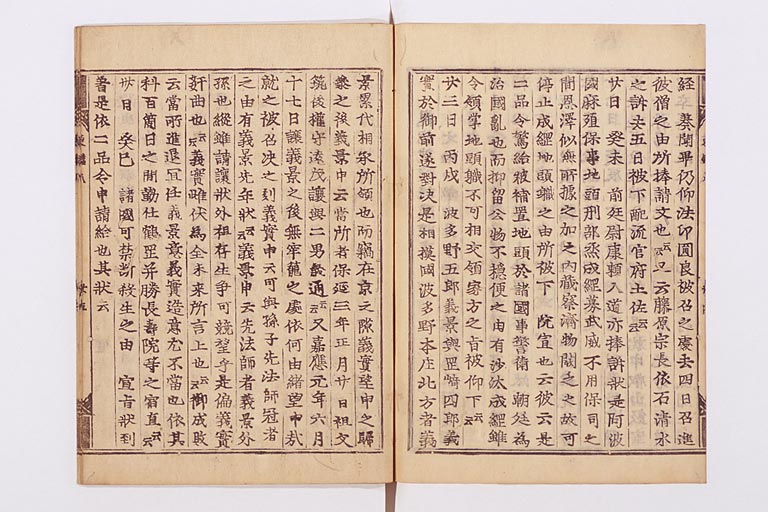 経卒奏聞畢仍仰法印圓良被召之處去四日召進
彼僧之由所捧請文也云々又云藤原宗長依石清水
之訴去五日被下配流官府土佐云々
廿日 癸未 前廷尉康頼入道亦捧訴状是阿波
國麻殖保事地頭刑部丞成經募武威不用保司之
間恩澤似無所據之加之内蔵寮濟物闕之之故可
停止成經地頭職之由所被下 院宣也云彼云是
二品令驚給被補置地頭於諸國事警衛 朝廷為
治國乱也而抑留公物不穏便之由有沙汰成經雖
令領掌地頭職不可相交領家方之旨被仰下云々
廿三日 丙戌 波多野五郎義景與罡崎四郎義
實於御前遂對决是相摸國波多野本庄北方者義
景累代相承所領也而竊在京之隙義實望申之歸
參之後義景申云當所者保延三年正月廿日祖父
筑後權守遠茂讓與二男義通云々又嘉應元年六月
十七日讓義景之後無窂籠之處依何由緒望申哉
就之被召决之刻義實申云可與孫子先法師冠者
之由有義景先年状云々義景申云先法師者義景外
孫也縱雖請讓状外祖存生爭可競望乎是偏義實
奸曲也云々義實雌伏為全未来所言上也云々御成敗
云當所進退可任義景意義實造意尤不當也依其
科百箇日之間勤仕鶴罡并勝長壽院等之宿直云々
廿日 癸巳 諸國可禁断殺生之由 宣旨状到
着是依二品令申請給也其状云